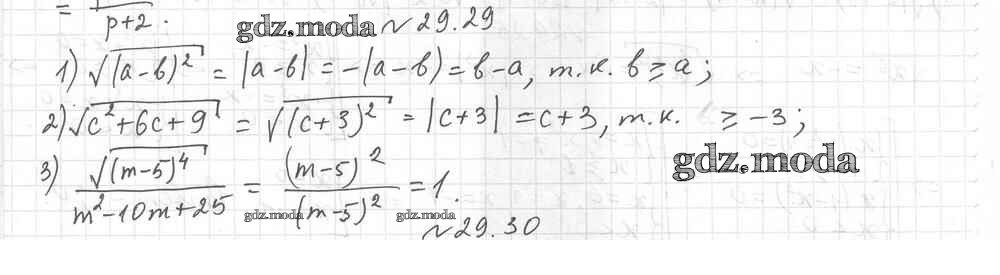 = / p+2.
gdz.moda № 29.29
1) √(a-b)² = |a-b| = -(a-b) = b-a, т.к. b ≥ a;
2) √c²+6c+9 = √(c+3)² = |c+3| = c+3, т.к. ≥ -3;
gdz.moda
3) √(m-5)⁴ / m²-10m+25 = (m-5)² / (m-5)² = 1.
gdz.moda gdz.moda
№ 29.30